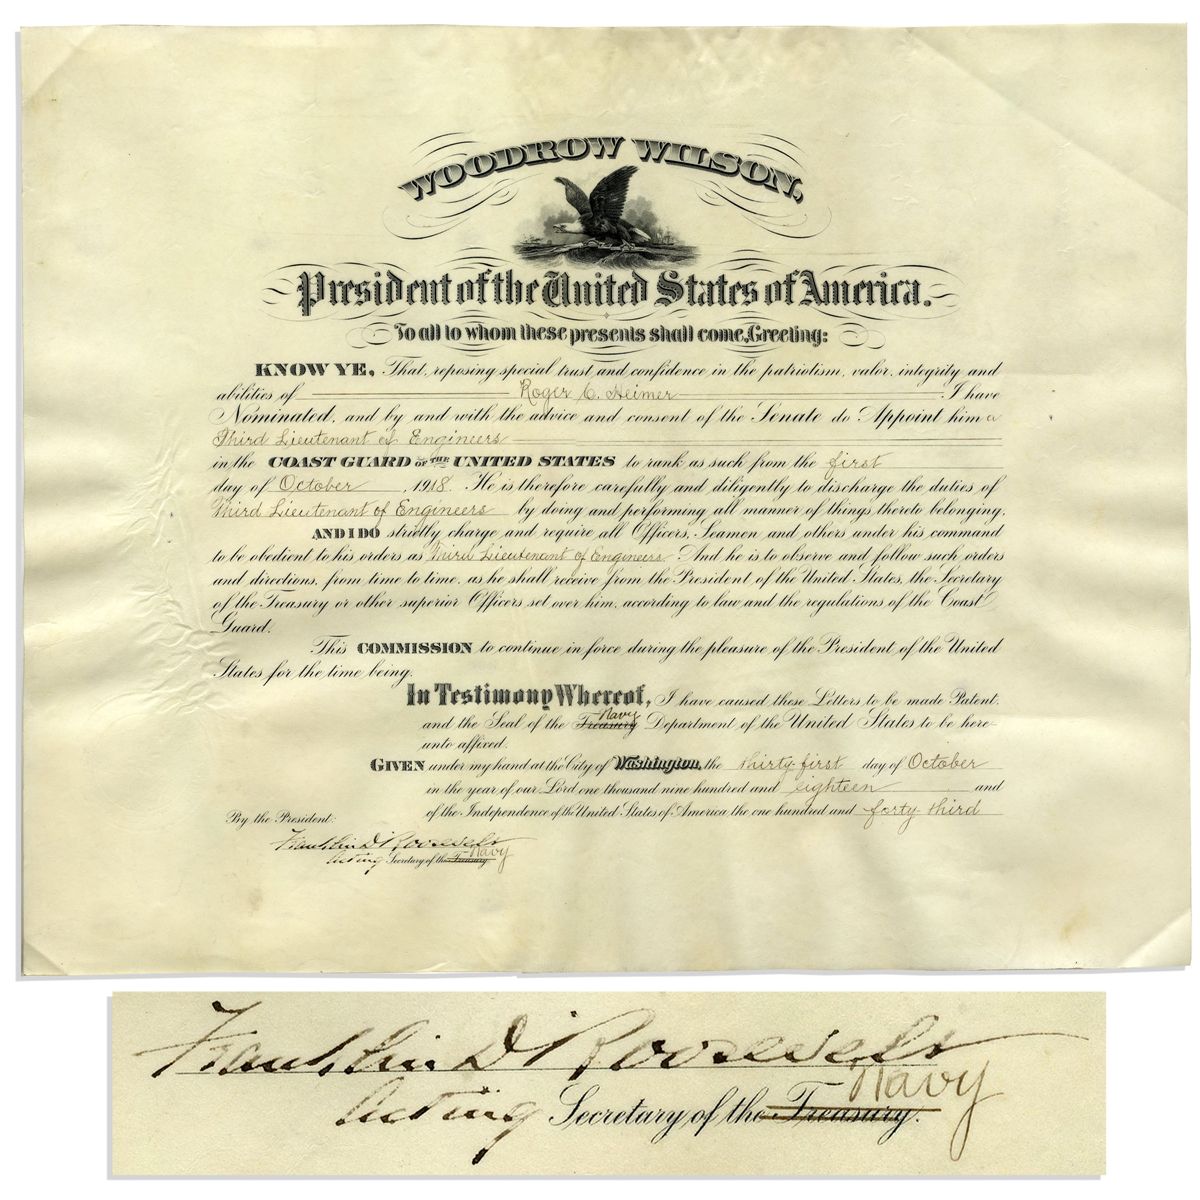 WOODROW WILSON,
President of the United States of America.
To all to whom these presents shall come, Greeting:
KNOW YE, That, reposing special trust and confidence in the patriotism, valor, integrity and
abilities of Roger C. Heimer I have
Nominated, and by and with the advice and consent of the Senate do Appoint him a
Third Lieutenant of Engineers
in the COAST GUARD OF THE UNITED STATES to rank as such from the first
day of October, 1918. He is therefore carefully and diligently to discharge the duties of
Third Lieutenant of Engineers by doing and performing all manner of things thereto belonging.
AND I DO strictly charge and require all Officers, Seamen and others under his command
to be obedient to his orders as Third Lieutenant of Engineers. And he is to observe and follow such orders
and directions, from time to time, as he shall receive from the President of the United States, the Secretary
of the Treasury or other superior Officers set over him, according to law and the regulations of the Coast
Guard.
This COMMISSION to continue in force during the pleasure of the President of the United
States for the time being.
In Testimony Whereof, I have caused these Letters to be made Patent,
and the Seal of the Treasury Navy Department of the United States to be here-
unto affixed.
GIVEN under my hand at the City of Washington, the thirty-first day of October
in the year of our Lord one thousand nine hundred and eighteen and
of the Independence of the United States of America the one hundred and forty third
By the President:
Franklin D Roosevelt
Acting Secretary of the Treasury Navy
Franklin D Roosevelt
Acting Secretary of the Treasury. Navy